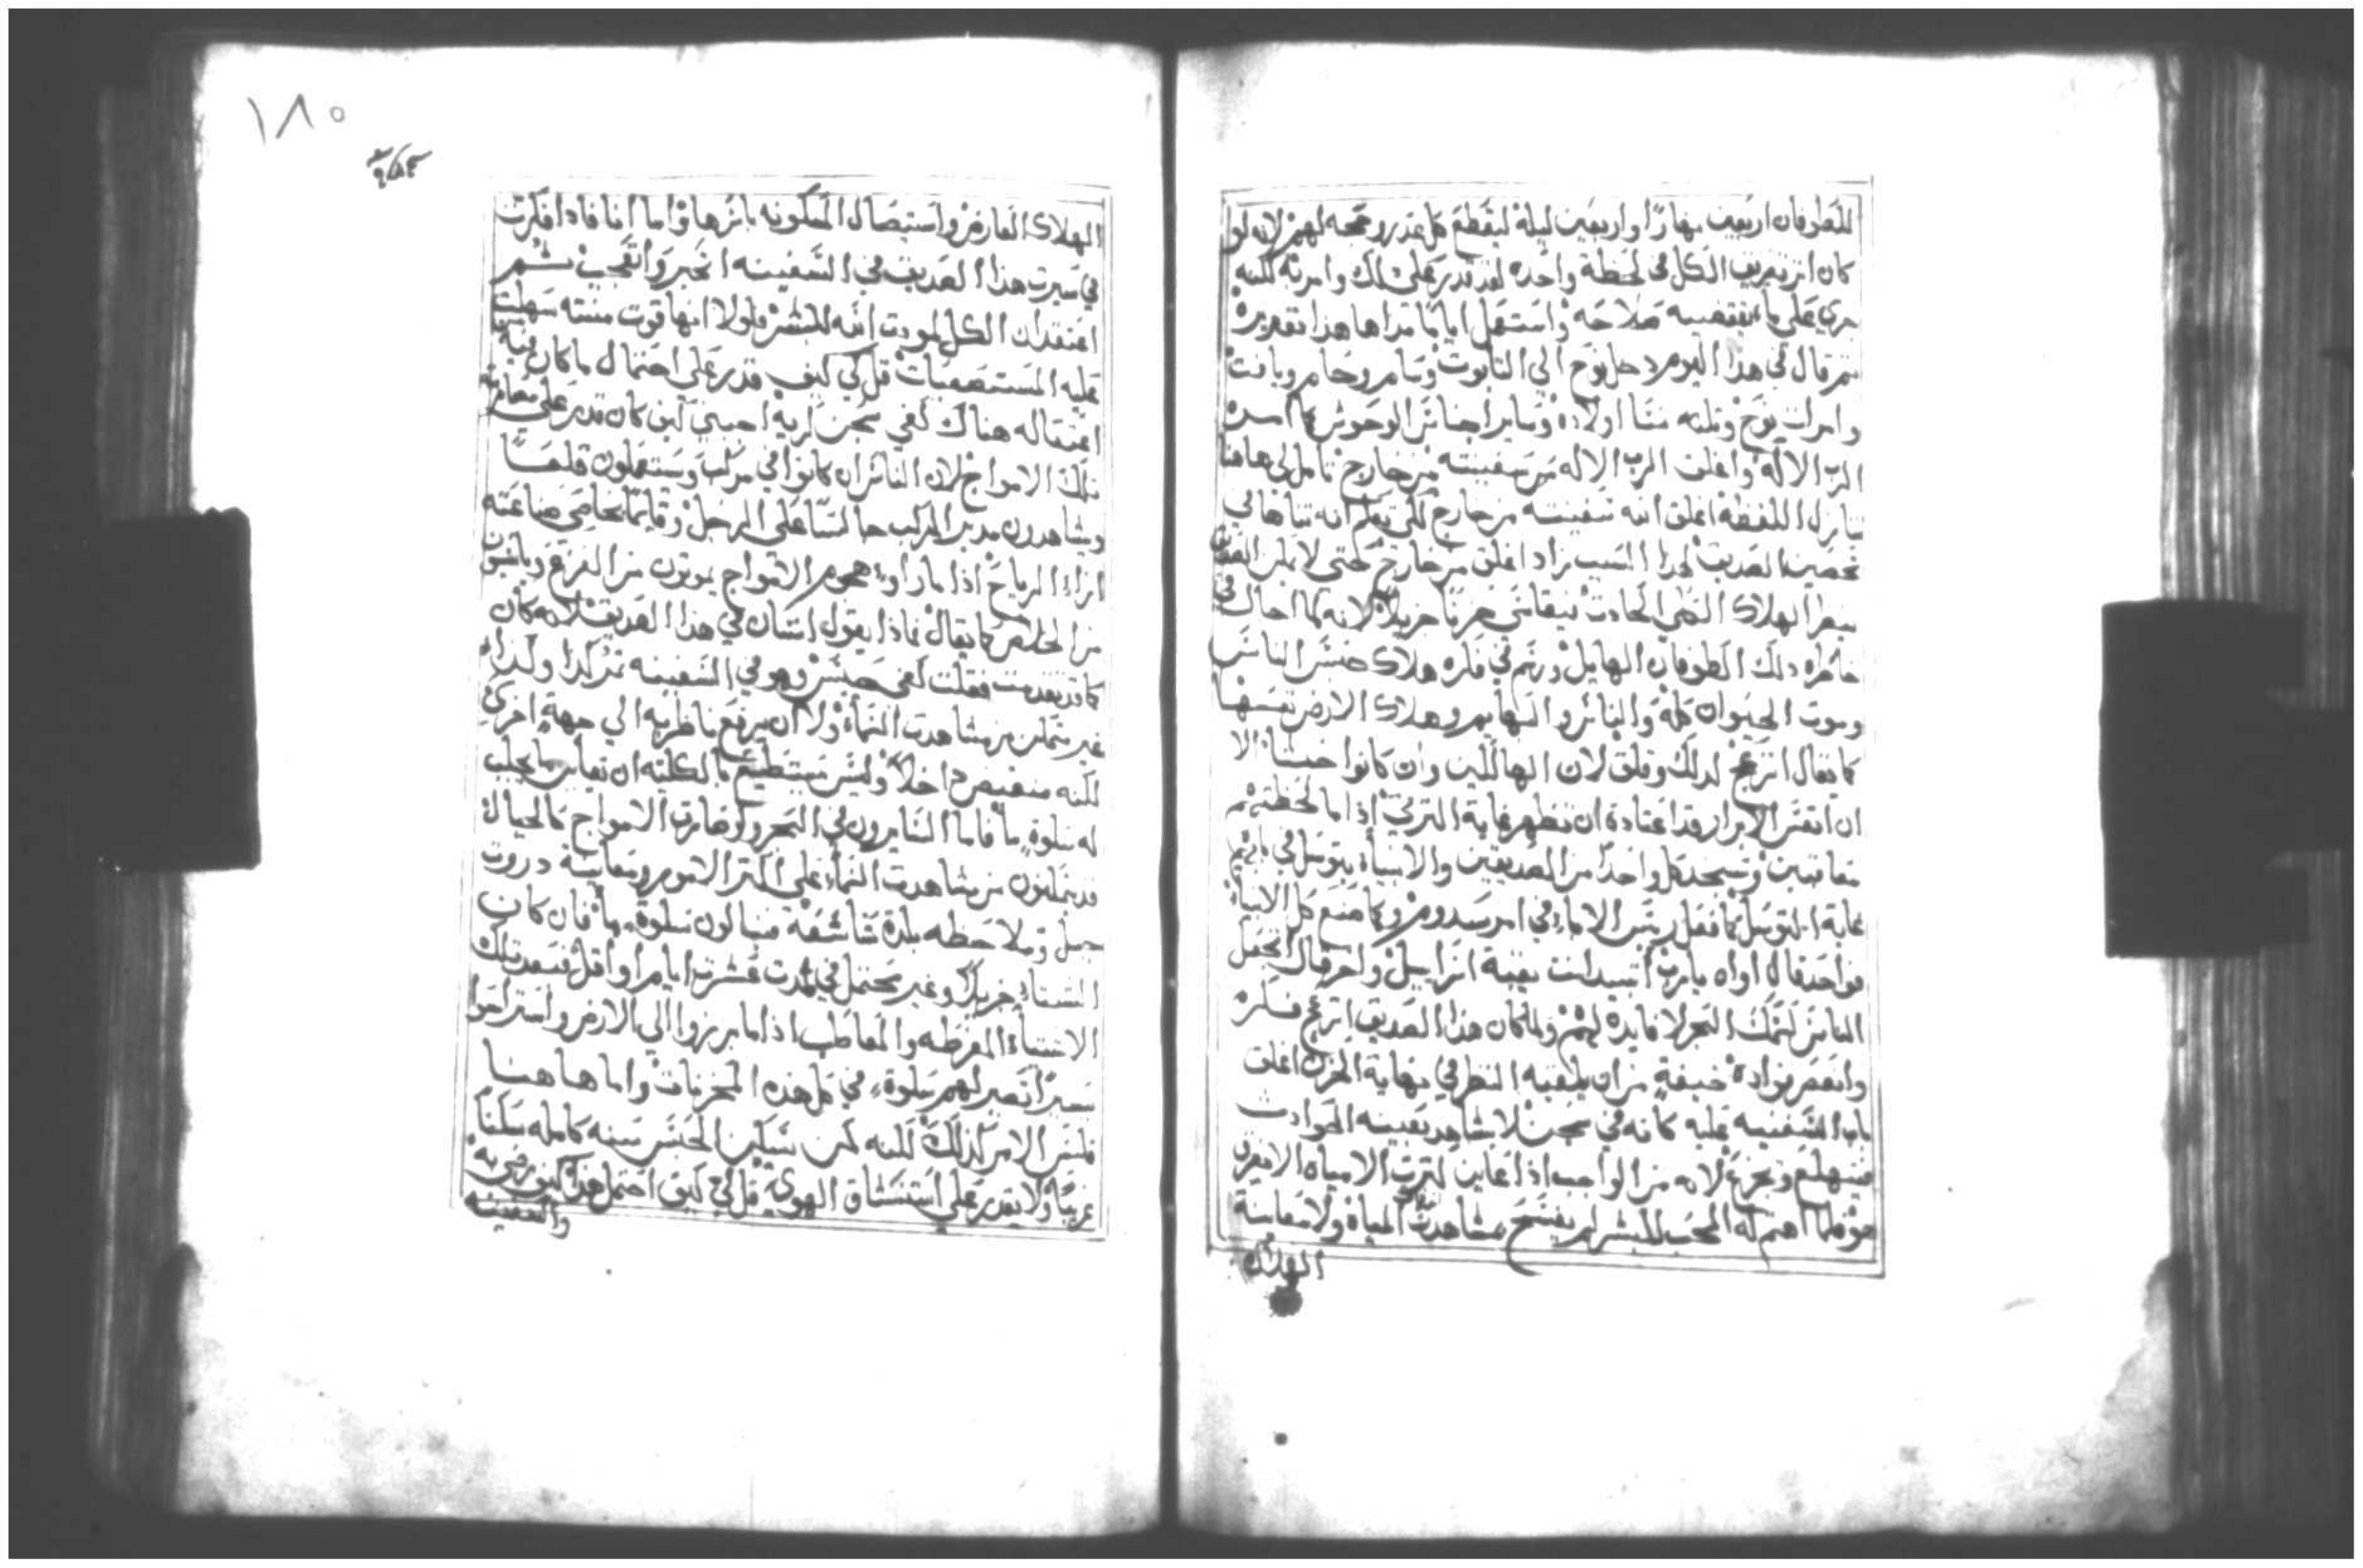 للطوفان اربعين نهارًا واربعين ليلة ليقطع كل عذر وحجه لهم لانه لو
كان اثر تغريق الكل في لحظة واحده لقد قدر على ذلك وامرته لكنه
جري على ما يقتضيه صلاحه واستعمل اياما مداها هذا تقديره
ثم قال في هذا اليوم دخل نوح الي التابوت وسام وحام ويافت
وامرات نوح وثلثه نسا اولاده وساير اجناس الوحوش كما امره
الرب الاله واغلق الرب الاله سفينته من خارج تامل لي هاهنا
تنازل اللفظه اغلق الله سفينته من خارج لكي تعلم انه تناها في
تحصين الصديق لهذا السبب زاد اغلق من خارج حتي لا يمكن الصديق
ينظر الهلاك الحادث فيقاسي حزنا جزيلا لانه لما احال في
خاطره ذلك الطوفان الهايل ورسم في فكره هلاك جنس الناس
وموت الحيوان كله والناس والبهايم وهلاك الارض نفسها
كما يقال انزعج لذلك وقلق لان الهالكين وان كانوا خبثا الا
ان انفس الابرار قد اعتادة ان تظهر غاية الترثي اذا ما لحظتهم
معاقبين وتجد كل واحدا من الصديقين والانبيا يتوسل في امرهم
غاية التوسل كما فعل ريس الاباء في امر سدوم وكما صنع كل الانبيا
فواحد قال اواه يارب اتبيد انت بقية اسراييل واخر قال اتجعل
الناس كسمك البحر لا قايد لهم ولما كان هذا الصديق انزعج فكره
وانعصر فواده خيفة من ان يلقيه النظر في نهاية الحزن اغلق
باب السفينه عليه كانه في سجن لا يشاهد بعينه الحوادث
فينهلع ويجزع لانه من الواجب اذا عاين كثرت الامياه الا يعرف
خوفا اهتم له المحب للبشر لم يفسح مشاهدت المياه ولا معاينة
الهلاك
١٨٠
الهلاك العارض واستيصال المسكونه باسرها واما انا فاذا افكرت
في سيرت هذا الصديق في السفينه اتحير واتعجب ثم
اعتقد ان الكل لمودت الله للبشر فلولا انها قوت منته سهلت
عليه المستصعبات قل لي كيف قدر على احتمال ما كان فيه
اعتقاله هناك كفي سجن اريه اجبني كيف كان قدر على مقاومة
تلك الامواج لان الناس ان كانوا في مركب ويستعملون قلعًا
ويشاهدون مدبر المركب جالسًا على الرجل وقايمًا بخاصي صناعته
ازاء الرياح اذا ما راوا هجوم الامواج يموتون من الفزع ويايسون
من الخلاص كما يقال فماذا يقول انسان في هذا الصديق لانه كان
كما قد تقدمت فقلت كفي حبس وهو في السفينه كذا وكذا
غير متمكن من مشاهدت السماء ولا ان يرفع ناظريه الي جهة اخري
لكنه منغص داخلا وليس يستطيع بالكليه ان يعاين ما يجلب
له سلوة ما فاما السايرون في البحر ولو صارت الامواج كالجبال
قد يتمكنون من مشاهدت السماء على اكثر الامور ومعاينة دروت
جبل وملاحظه بلدة شاسعة فينالون سلوة ما فان كان
الشتاء جزيلا وغير محتمل في مدت عشرة ايام او اقل فبعد تلك
الاشياء المفرطه والمعاطب اذا ما برزوا الي الارض واستراحوا
يسيرًا تصير لهم سلوة في كل هذه المحزنات واما هاهنا
فليس الامر كذلك لكنه كمن سكن الحبس سنه كامله سكنًا
غريبًا ولا يقدر على استنشاق الهوي قل لي كيف احتمل هذا كيف رضي به
والسفينه